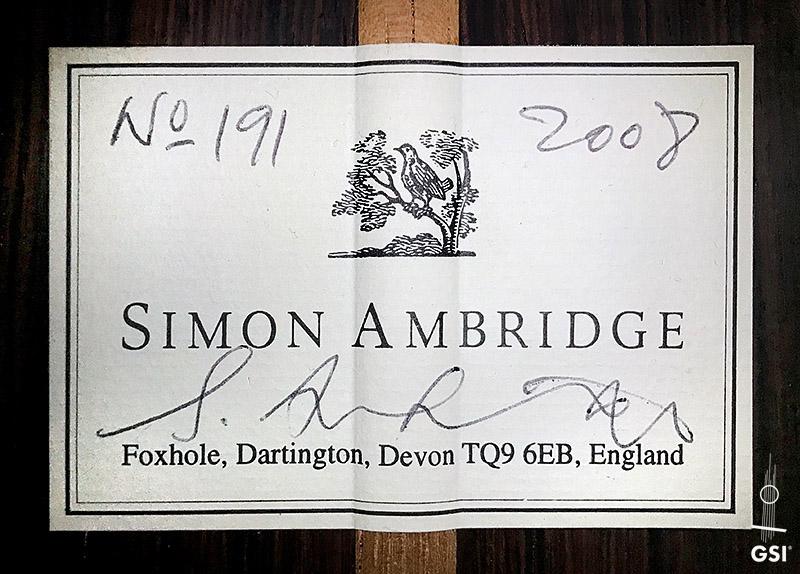 No 191 2008
SIMON AMBRIDGE
S. Ambridge
Foxhole, Dartington, Devon TQ9 6EB, England
GSI